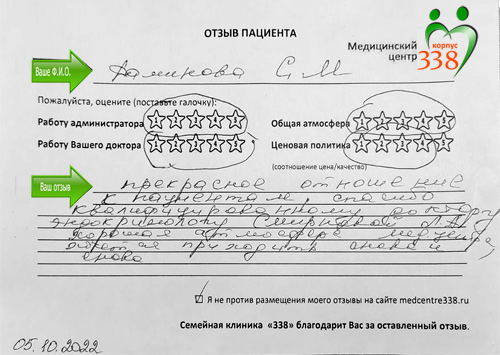 ОТЗЫВ ПАЦИЕНТА
Медицинский центр
корпус
338
Ваше Ф.И.О.
С. М
Пожалуйста, оцените (поставьте галочку):
Работу администратора 1 2 3 4 5
Общая атмосфера 1 2 3 4 5
Работу Вашего доктора 1 2 3 4 5
Ценовая политика 1 2 3 4 5
(соотношение цена/качество)
Ваш отзыв
прекрасное отношение
к пациентам, спасибо
квалифицированному доктору
эндокринологу Смирновой
хорошая атмосфера мед центра,
хочется приходить снова и
снова
Я не против размещения моего отзыва на сайте medcentre338.ru
Семейная клиника «338» благодарит Вас за оставленный отзыв.
05.10.2022